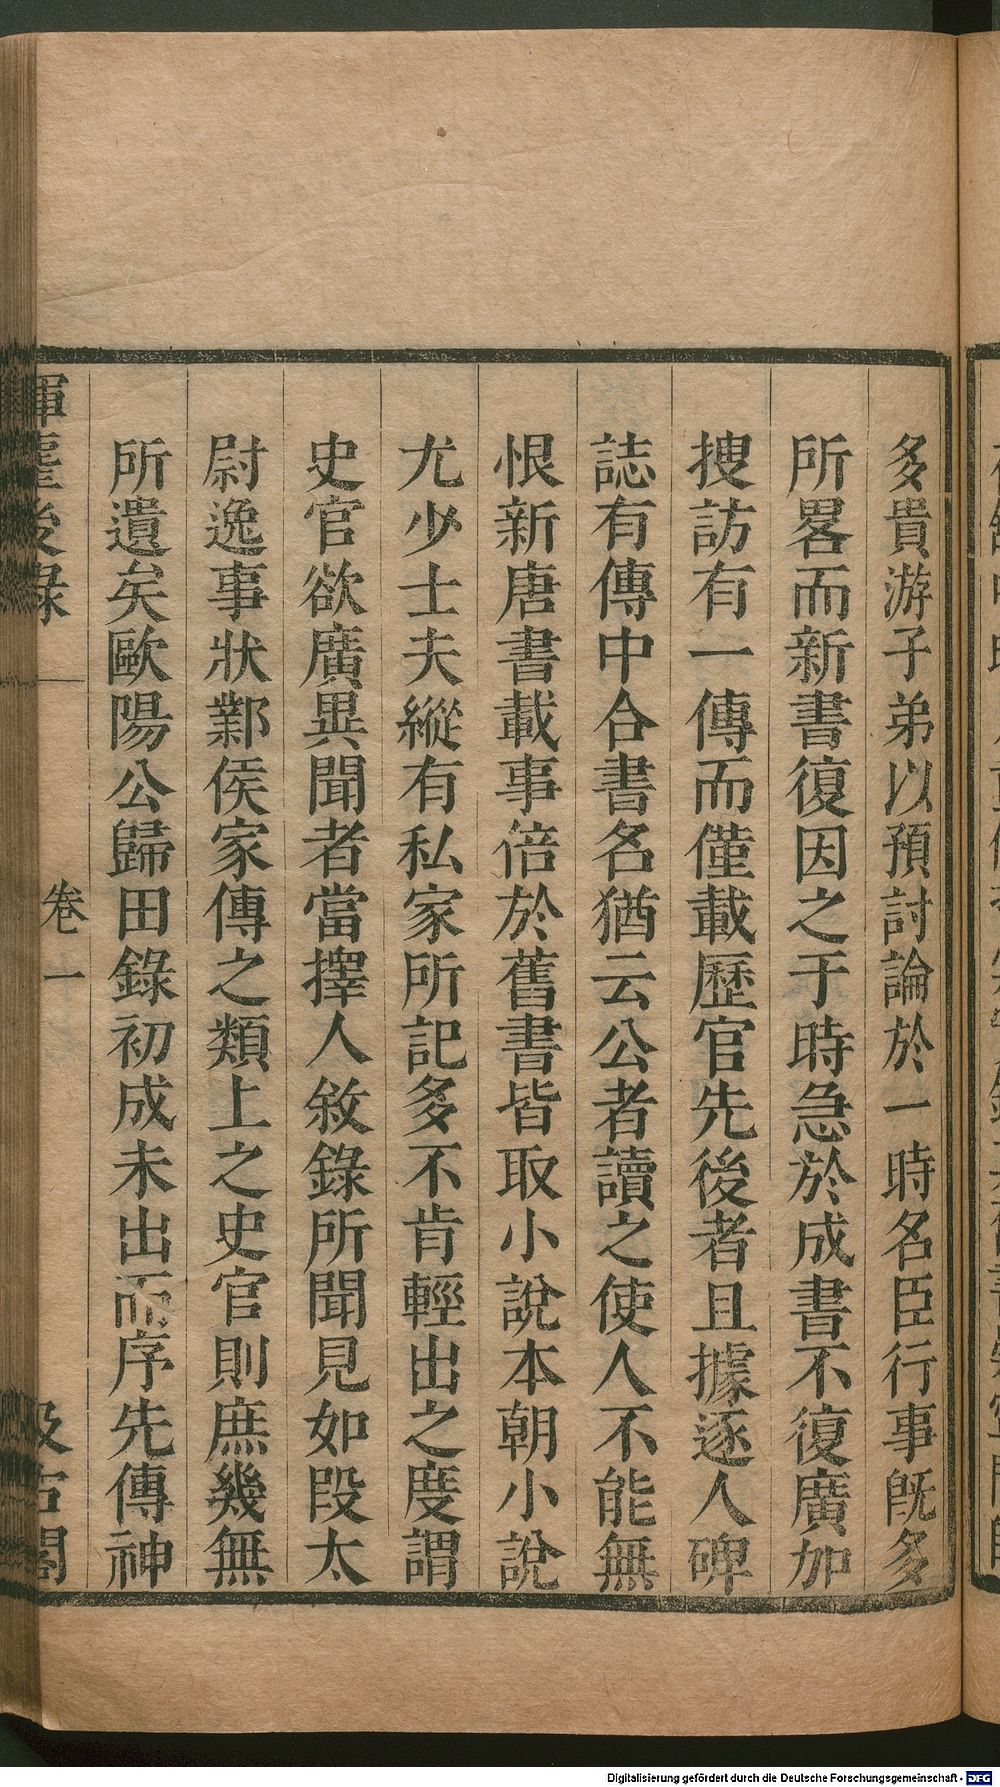 多貴游子弟以預討論於一時名臣行事旣多
所畧而新書復因之于時急於成書不復廣加
捜訪有一傳而僅載歷官先後者且據逐人碑
誌有傳中合書名猶云公者讀之使人不能無
恨新唐書載事倍於舊書皆取小說本朝小說
尤少士夫縱有私家所記多不肯輕出之度謂
史官欲廣異聞者當擇人敘錄所聞見如段太
尉逸事狀鄴侯家傳之類上之史官則庶幾無
所遺矣歐陽公歸田錄初成未出而序先傳神
揮麈後錄
卷一
汲古閣
Digitalisierung gefördert durch die Deutsche Forschungsgemeinschaft - DFG